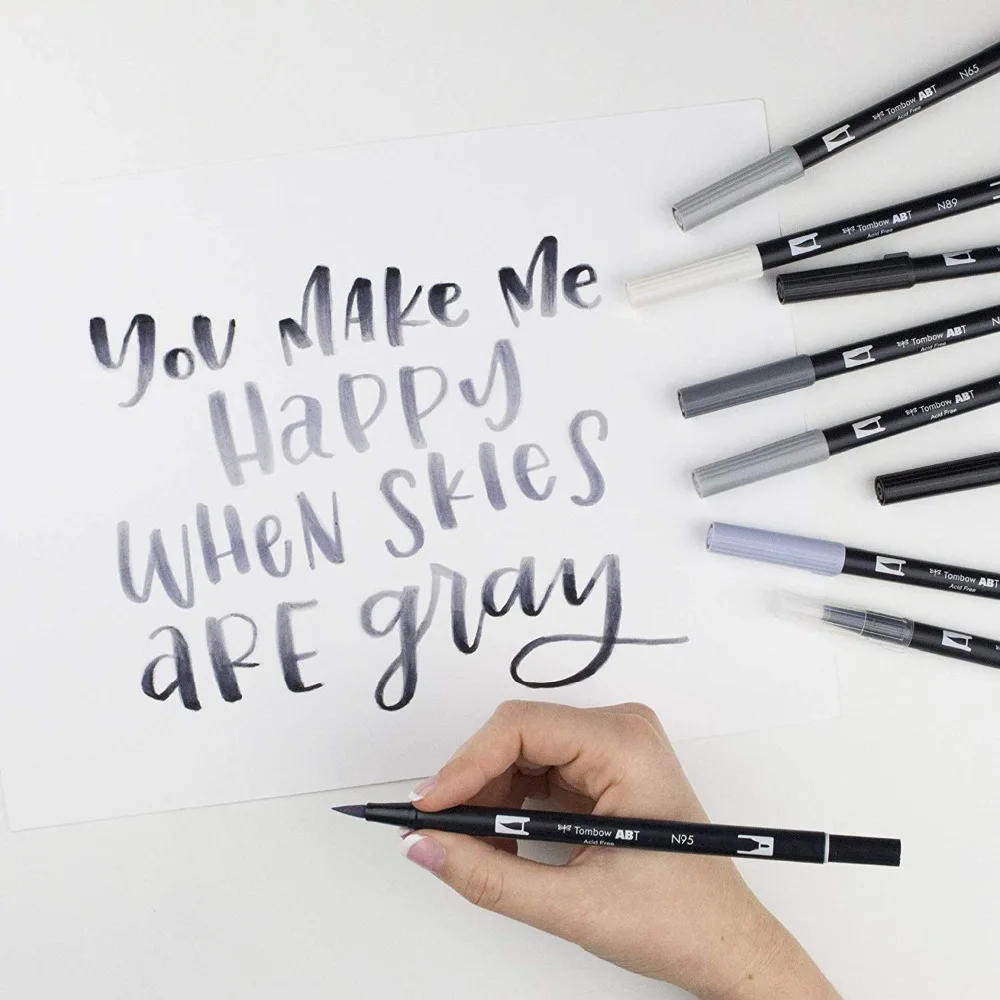 YOU MAKE ME
HaPPY
WHeN SKIES
aRE gray
Tombow ABT
Acid Free
N65
Tombow ABT
Acid Free
N89
Tombow ABT
Tombow ABT
Tombow ABT
Tombow ABT
Acid Free
N95